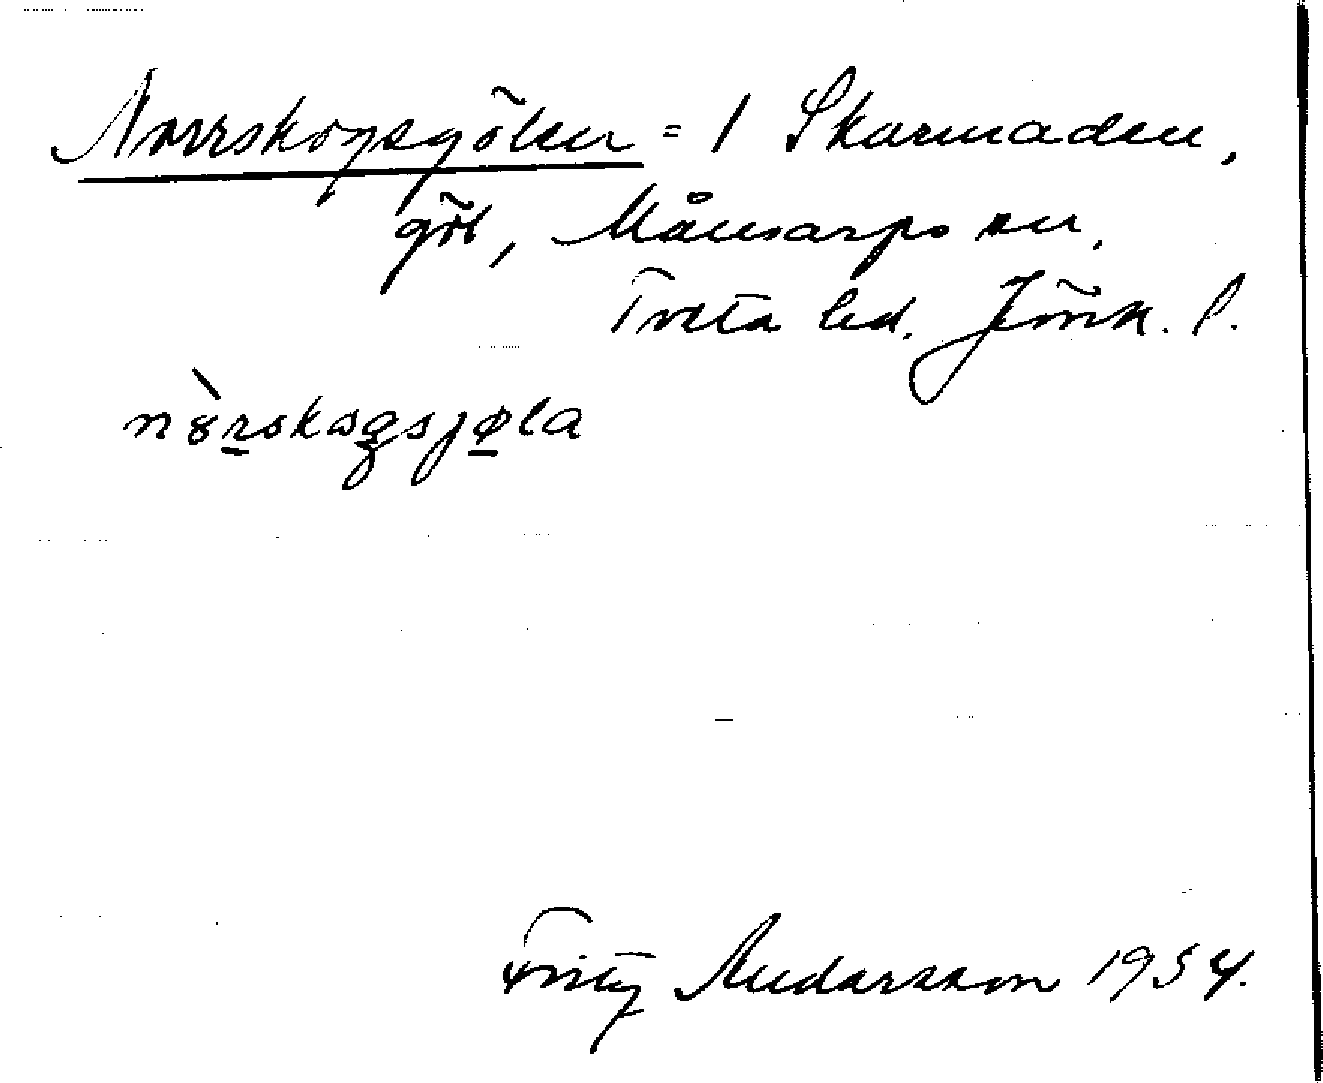 Norrskogsgölen = 1 Skarmaden,
göl, Månsarps sn,
Tveta hd. Jönk. l.
Fritz Andersson 1954.